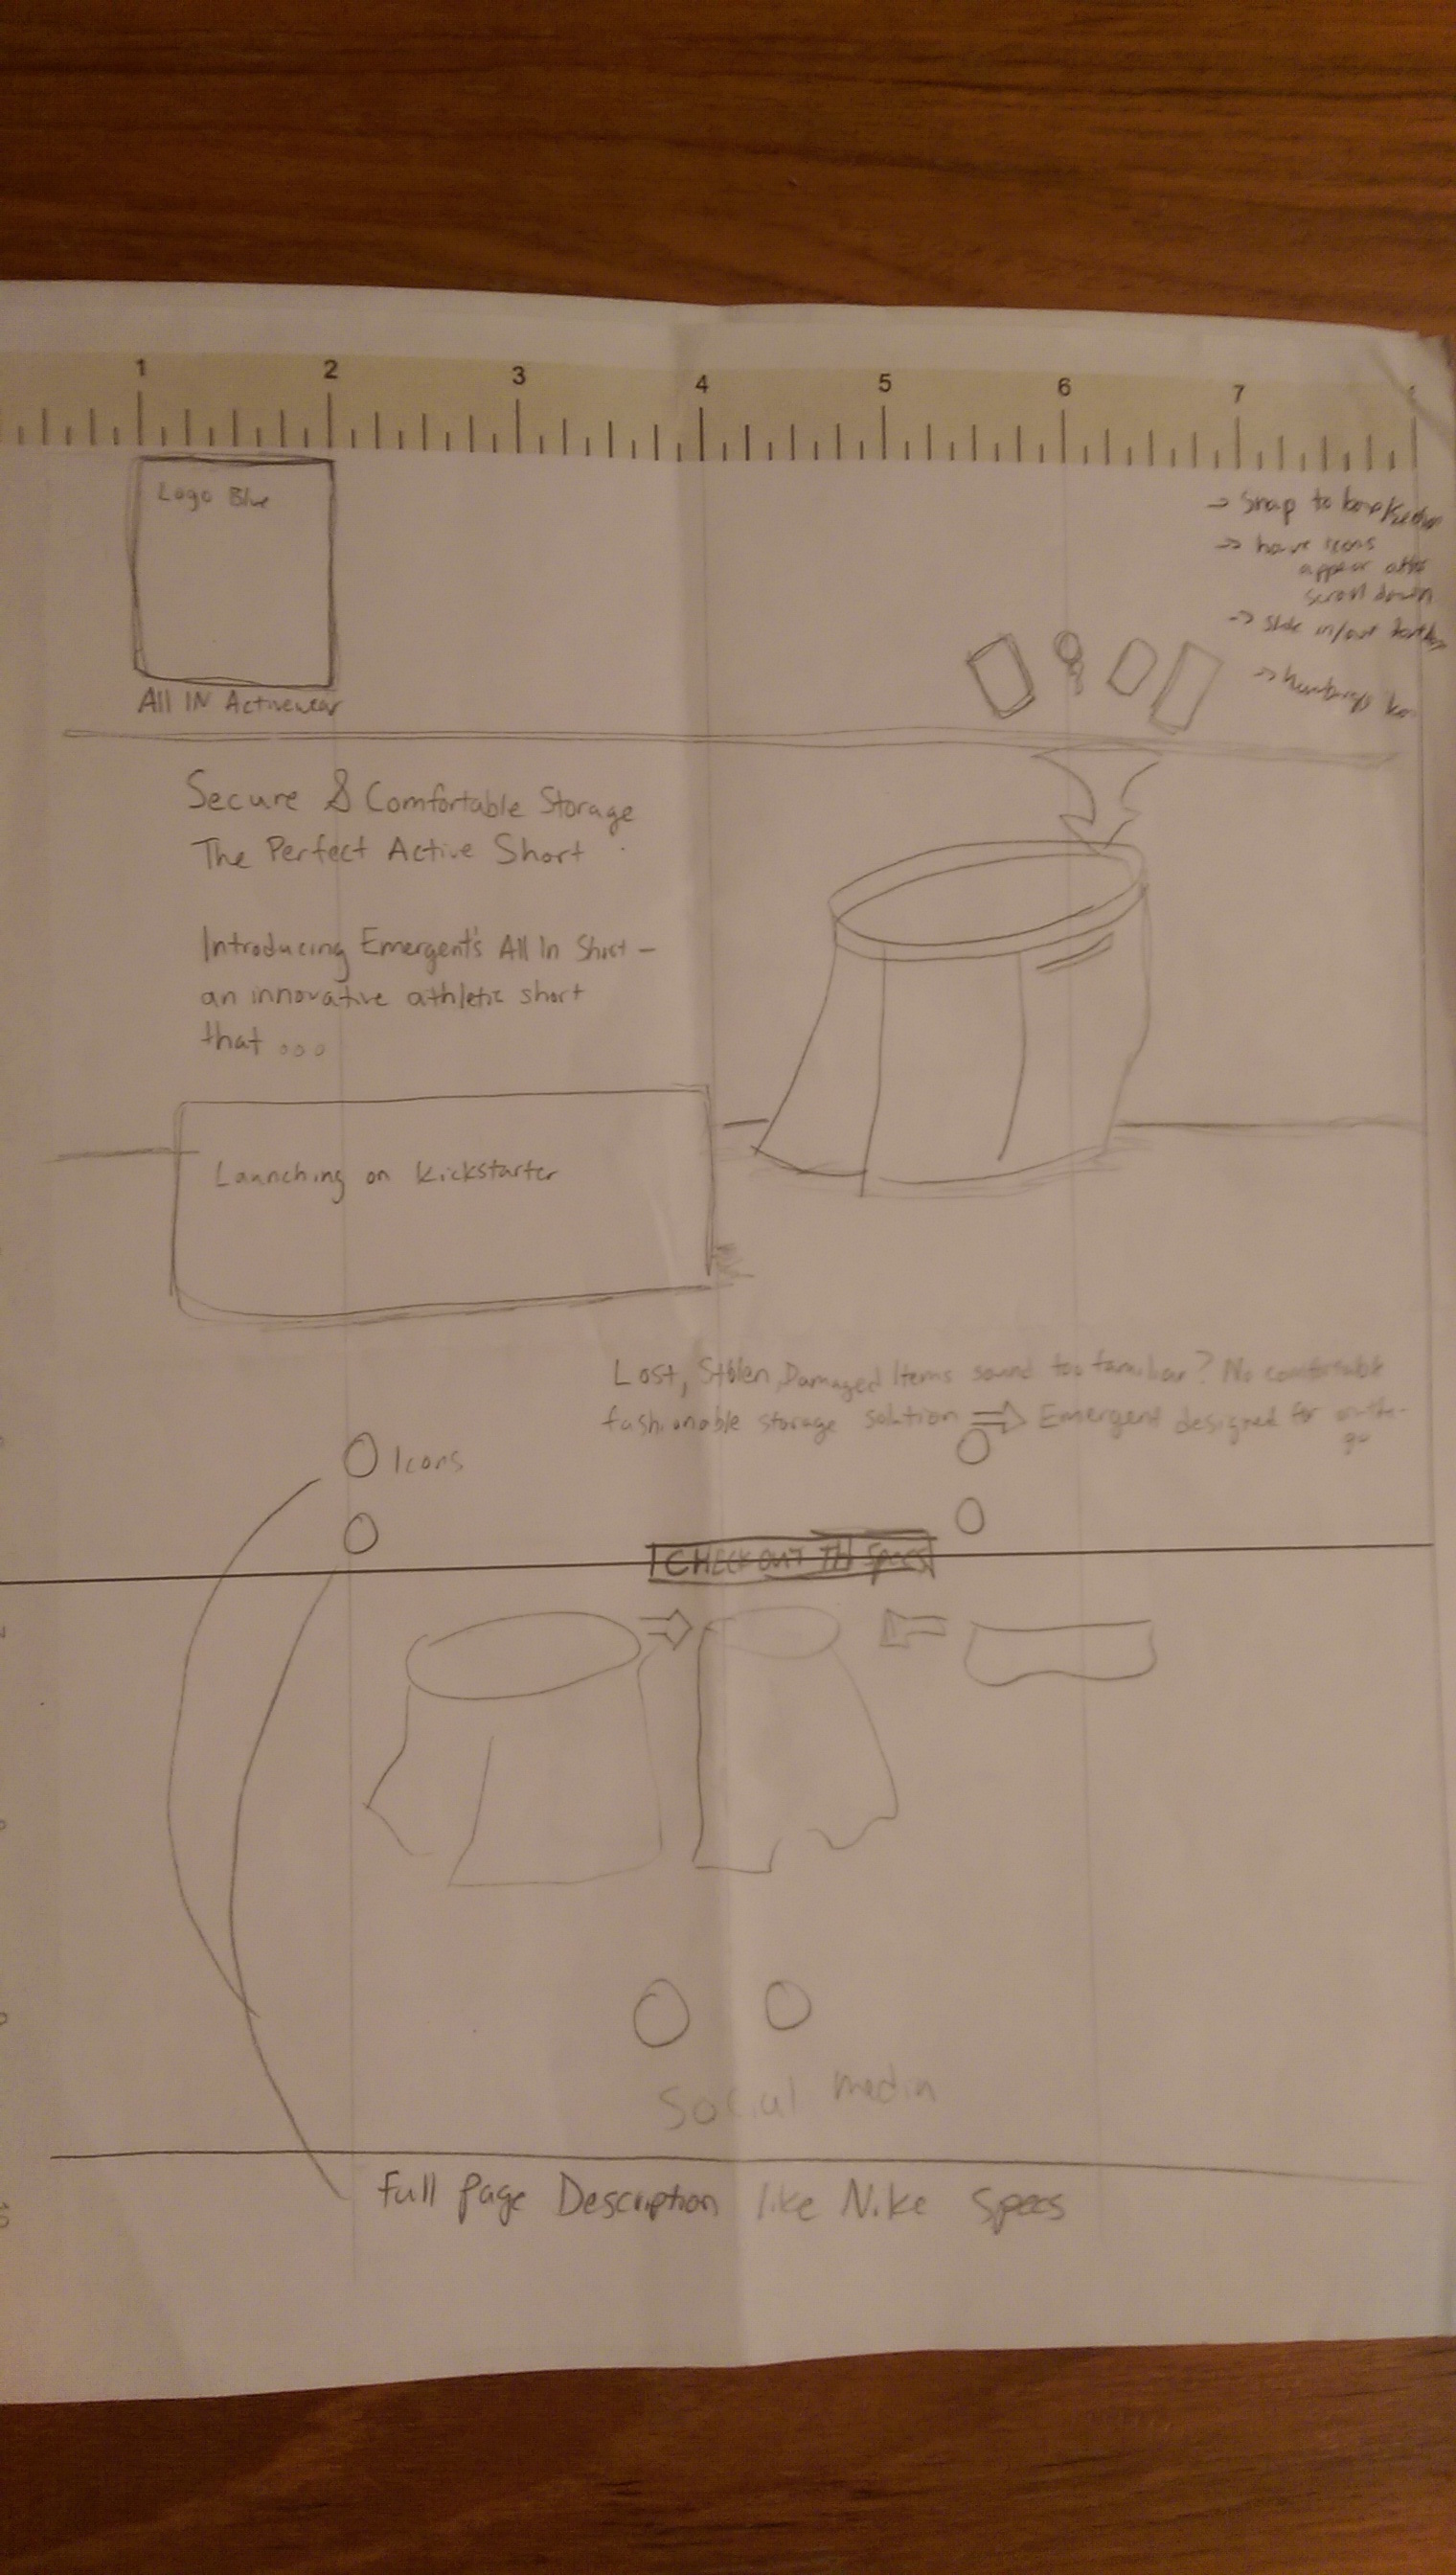 1 2 3 4 5 6 7
Logo Blue
All IN Activewear
→ Snap to
→ have icons
appear after
scroll down
→ slide in/out
→
Secure & Comfortable Storage
The Perfect Active Short
Introducing Emergent's All In Short –
an innovative athletic short
that ...
Launching on Kickstarter
Lost, Stolen, Damaged Items sound too familiar? No comfortable
fashionable storage solution ⇒ Emergent designed for on-the-
go
Icons
CHECK OUT The Specs
Social media
Full Page Description like Nike Specs